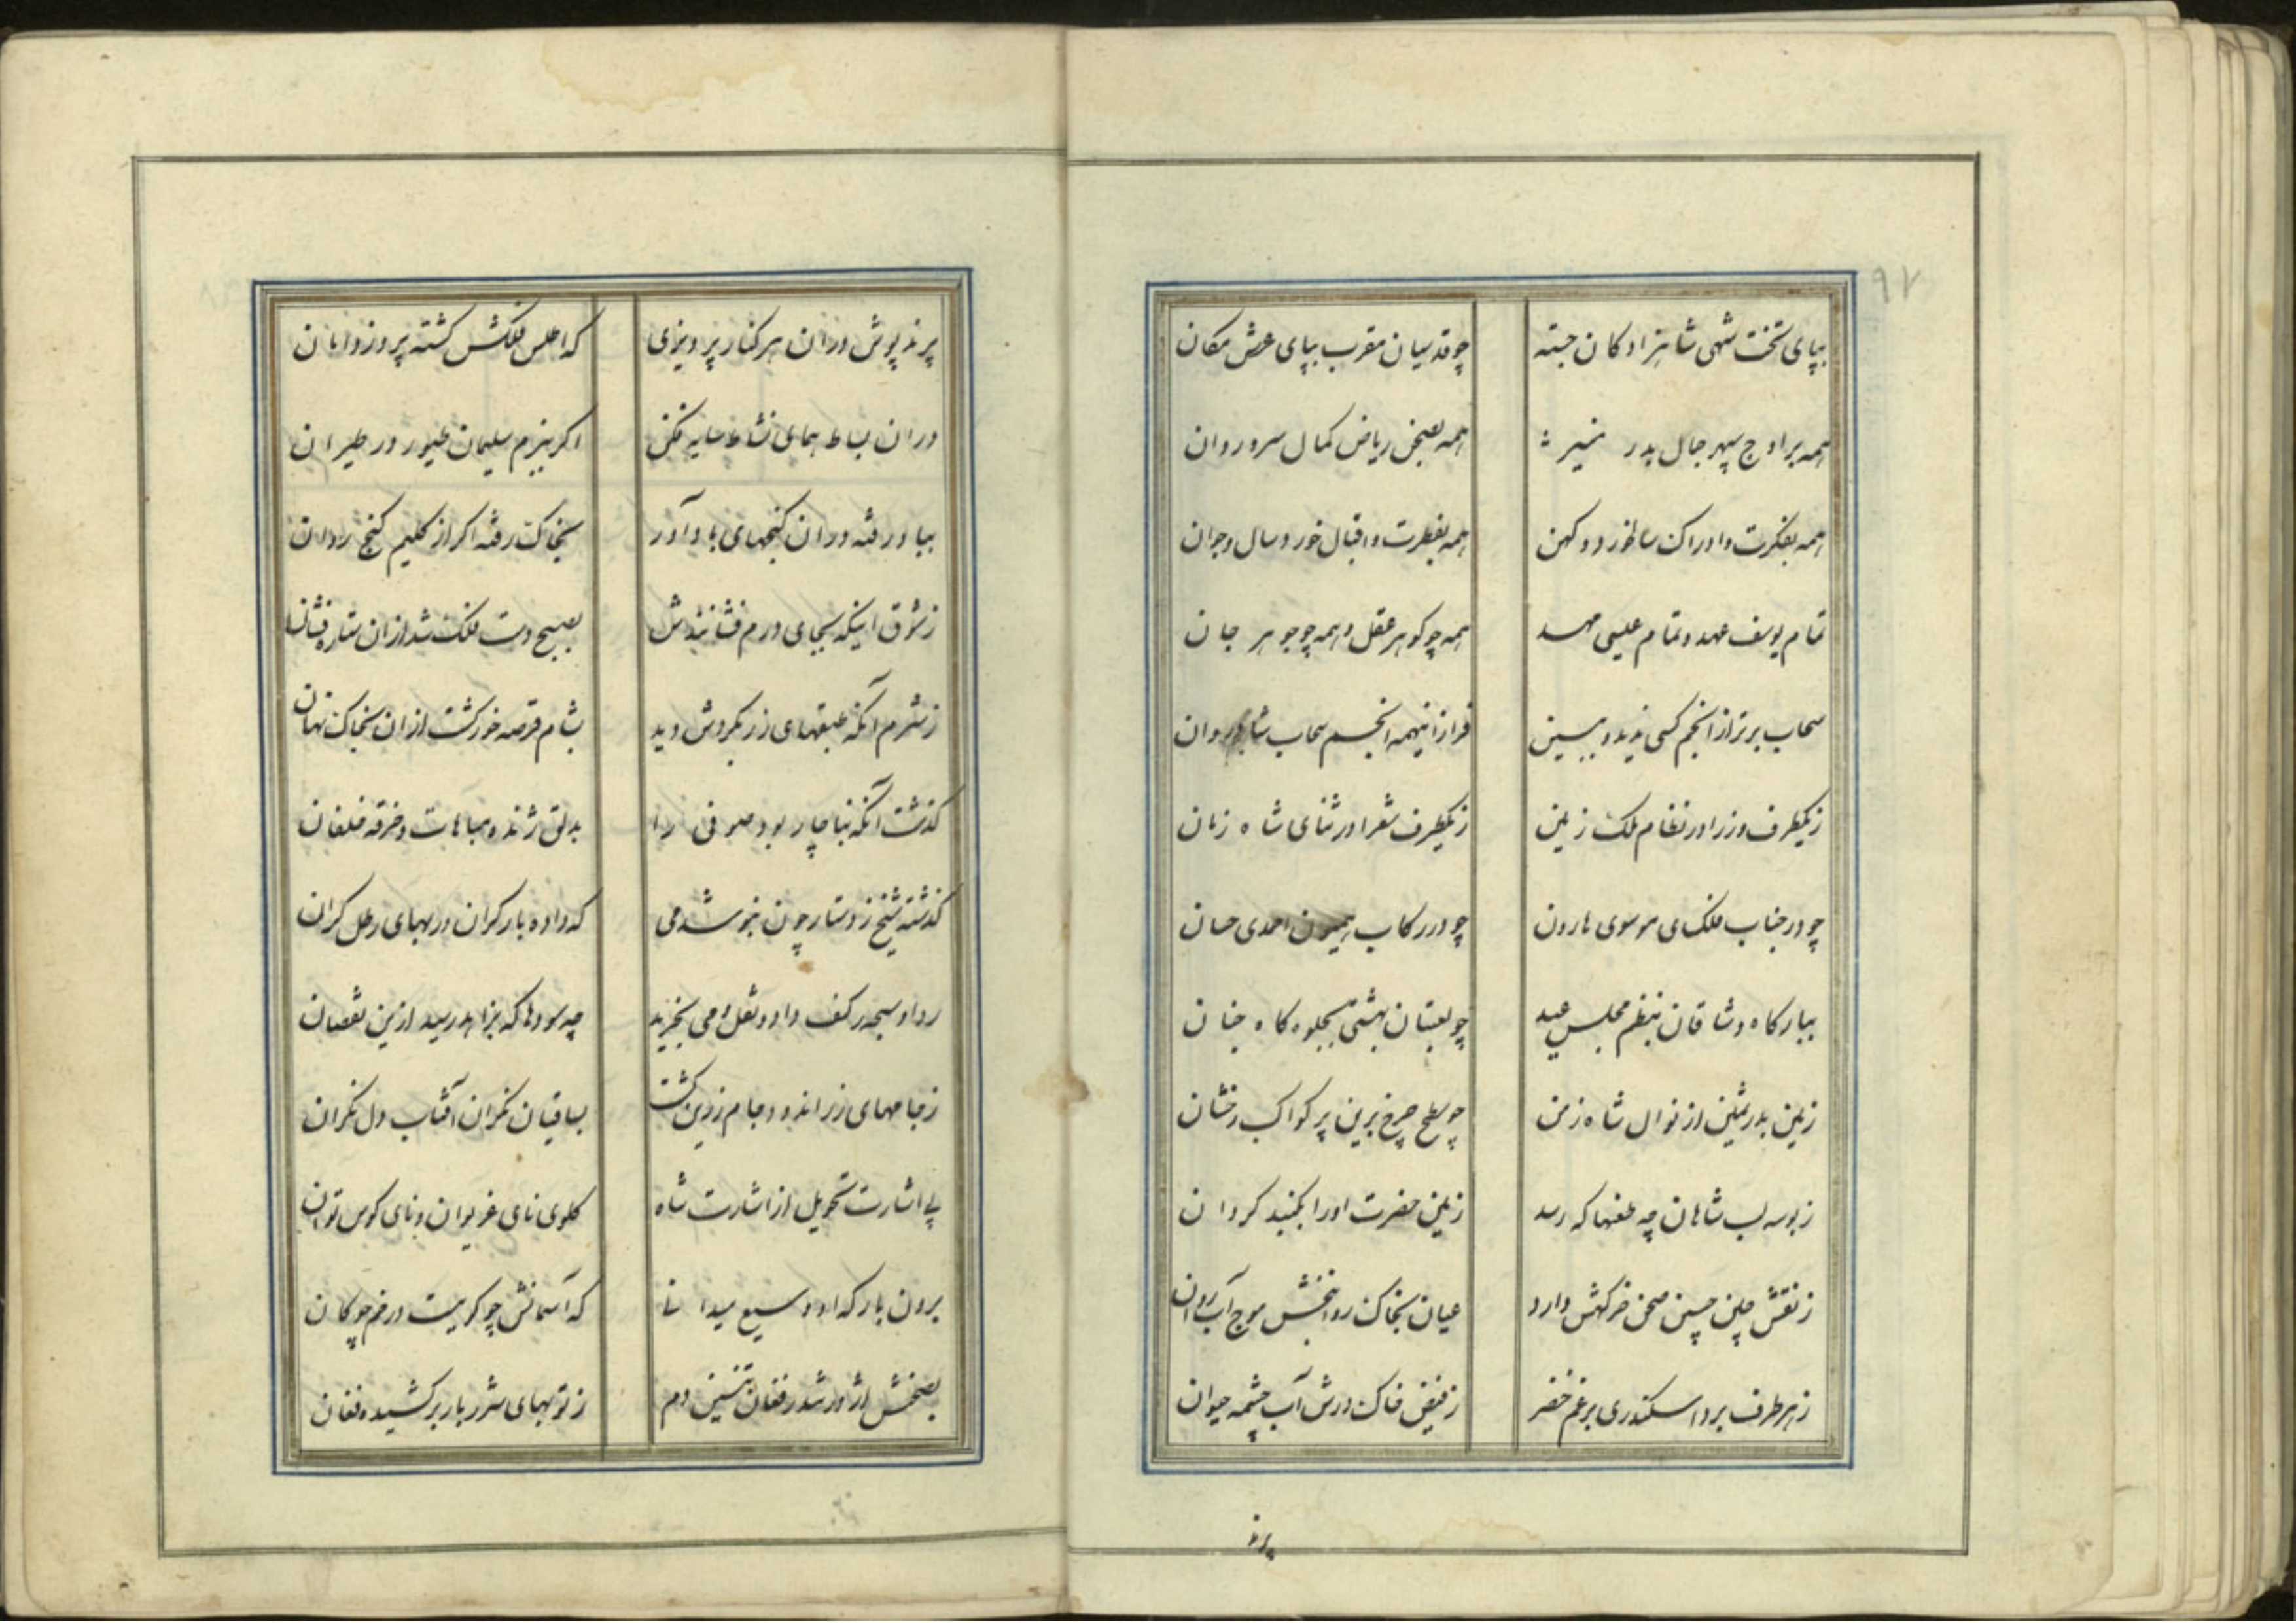 ۹۲
بپای تخت شهی شاهزادکان جسته چو قدسیان مقرب بپای عرش مکان
همه بر اوج سپهر جمال بدر منیر همه بصحن ریاض کمال سرو روان
همه بفکرت و ادراک سالخورد و کهن همه بفطرت و اقبال خوردسال و جوان
تمام یوسف عهد و تمام عیسی مهد همه چو کوهر عقل و همه چو جوهر جان
سحاب برتر از انجم کسی ندید و ببین فراز اینهمه انجم سحاب شاه روان
زیکطرف وزرا در نظام ملک زمین زیکطرف شعرا در ثنای شاه زمان
چو در جناب ملک ی موسوی هارون چو در رکاب همیون احمدی حسان
ببارکاه وشاقان بنظم مجلس عید چو لعبتان بهشتی بجلوه کاه جنان
زمین بدر ثمین از نوال شاه زمن چو سطح چرخ برین پر کواکب رخشان
زبوسه لب شاهان چه عقدها که رسد زمین حضرت او را بکنبد کردان
زنقش چین جبین صحن خرکهش دارد عیان بخاک روانبخش موج آب روان
زهر طرف بر او اسکندری برغم خضر زفیض خاک درش آب چشمه حیوان
پرند
پرند پوش در ان هر کنار پرویزی که اطلس فلکش کشته پروز دامان
در ان بساط همای نشاط سایه فکن اکر ببزم سلیمان طیور در طیران
بباد رفته در ان کنجهای باد آور بخاک رفته اکر از کلیم کنج روان
زشوق اینکه بجای درم فشانندش بصبح دست فلک شد ازان ستاره فشان
زشرم آنکه طبقهای زر بکردش دید بشام قرصه خور کشت ازان بخاک نهان
کذشت آنکه بناچار بود صوفی را بدلق ژنده مباهات و خرقه خلقان
کذشته شیخ زدستار چون بنوشد می که داده بار کران در بهای رطل کران
ردا و سبحه زکف داد و نقل و می بخرید چه سودها که بزاهد رسید ازین نقصان
زجامهای زراندود و جام زرین کشت بساقیان نکران آفتاب دل نکران
پی اشارت تحویل از اشارت شاه کلوی نای غریوان و نای کوس نوان
برون بارکه او وسیع میدانی که آسمانش چو کوییست در خم چوکان
بصحنش اژدر شد در فغان تنین دم زتوپهای شرربار بر کشیده فغان